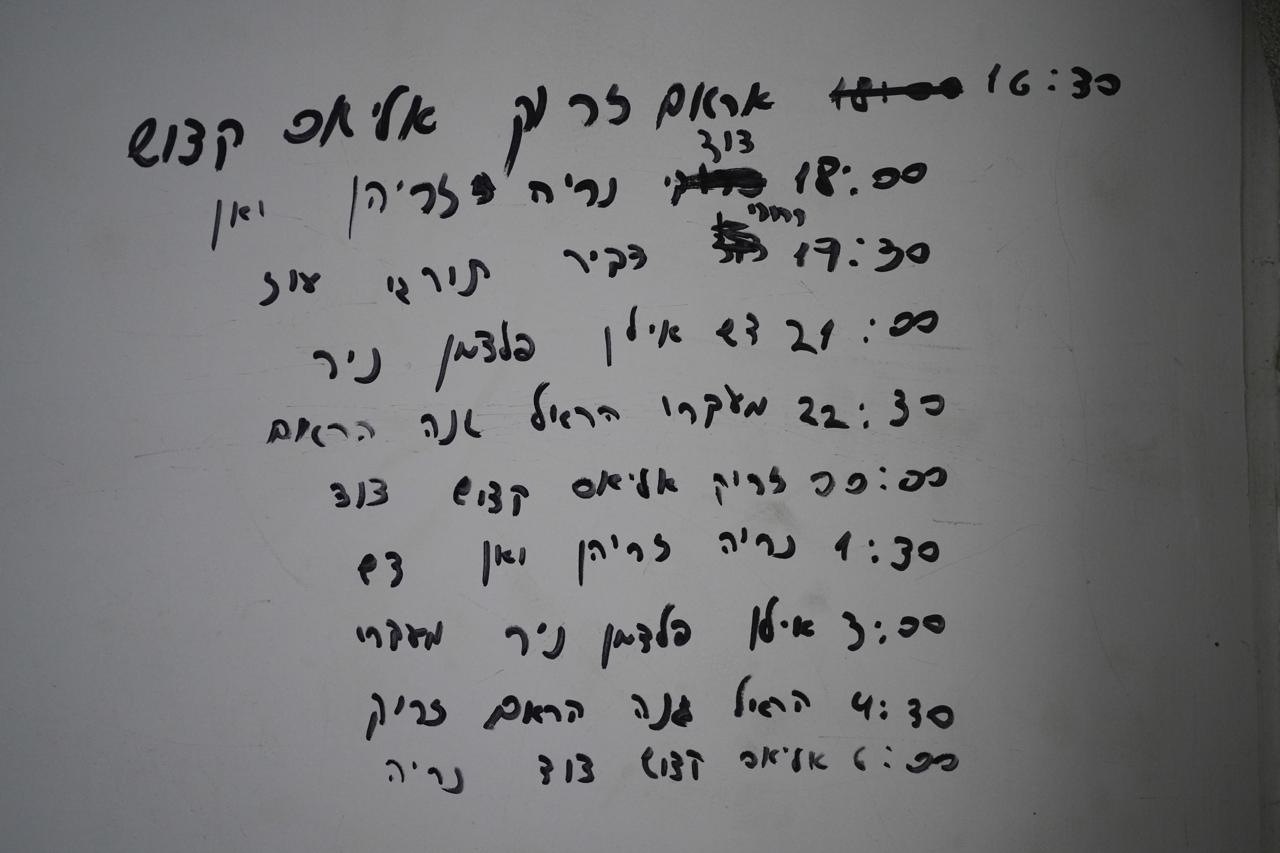 16:30 אראם זריק אליאס קדוש
18:00 דוד נריה זריהן ואן
17:30 דביר תורגי עוז
21:00 דש אילן פלדמן ניר
22:30 מעקרו הראל גנה הראם
00:00 זריק אליאס קדוש דוד
1:30 נריה זריהן ואן דש
3:00 אילן פלדמן ניר מעקרו
4:30 הראל גנה הראם זריק
6:00 אליאס קדוש דוד נריה